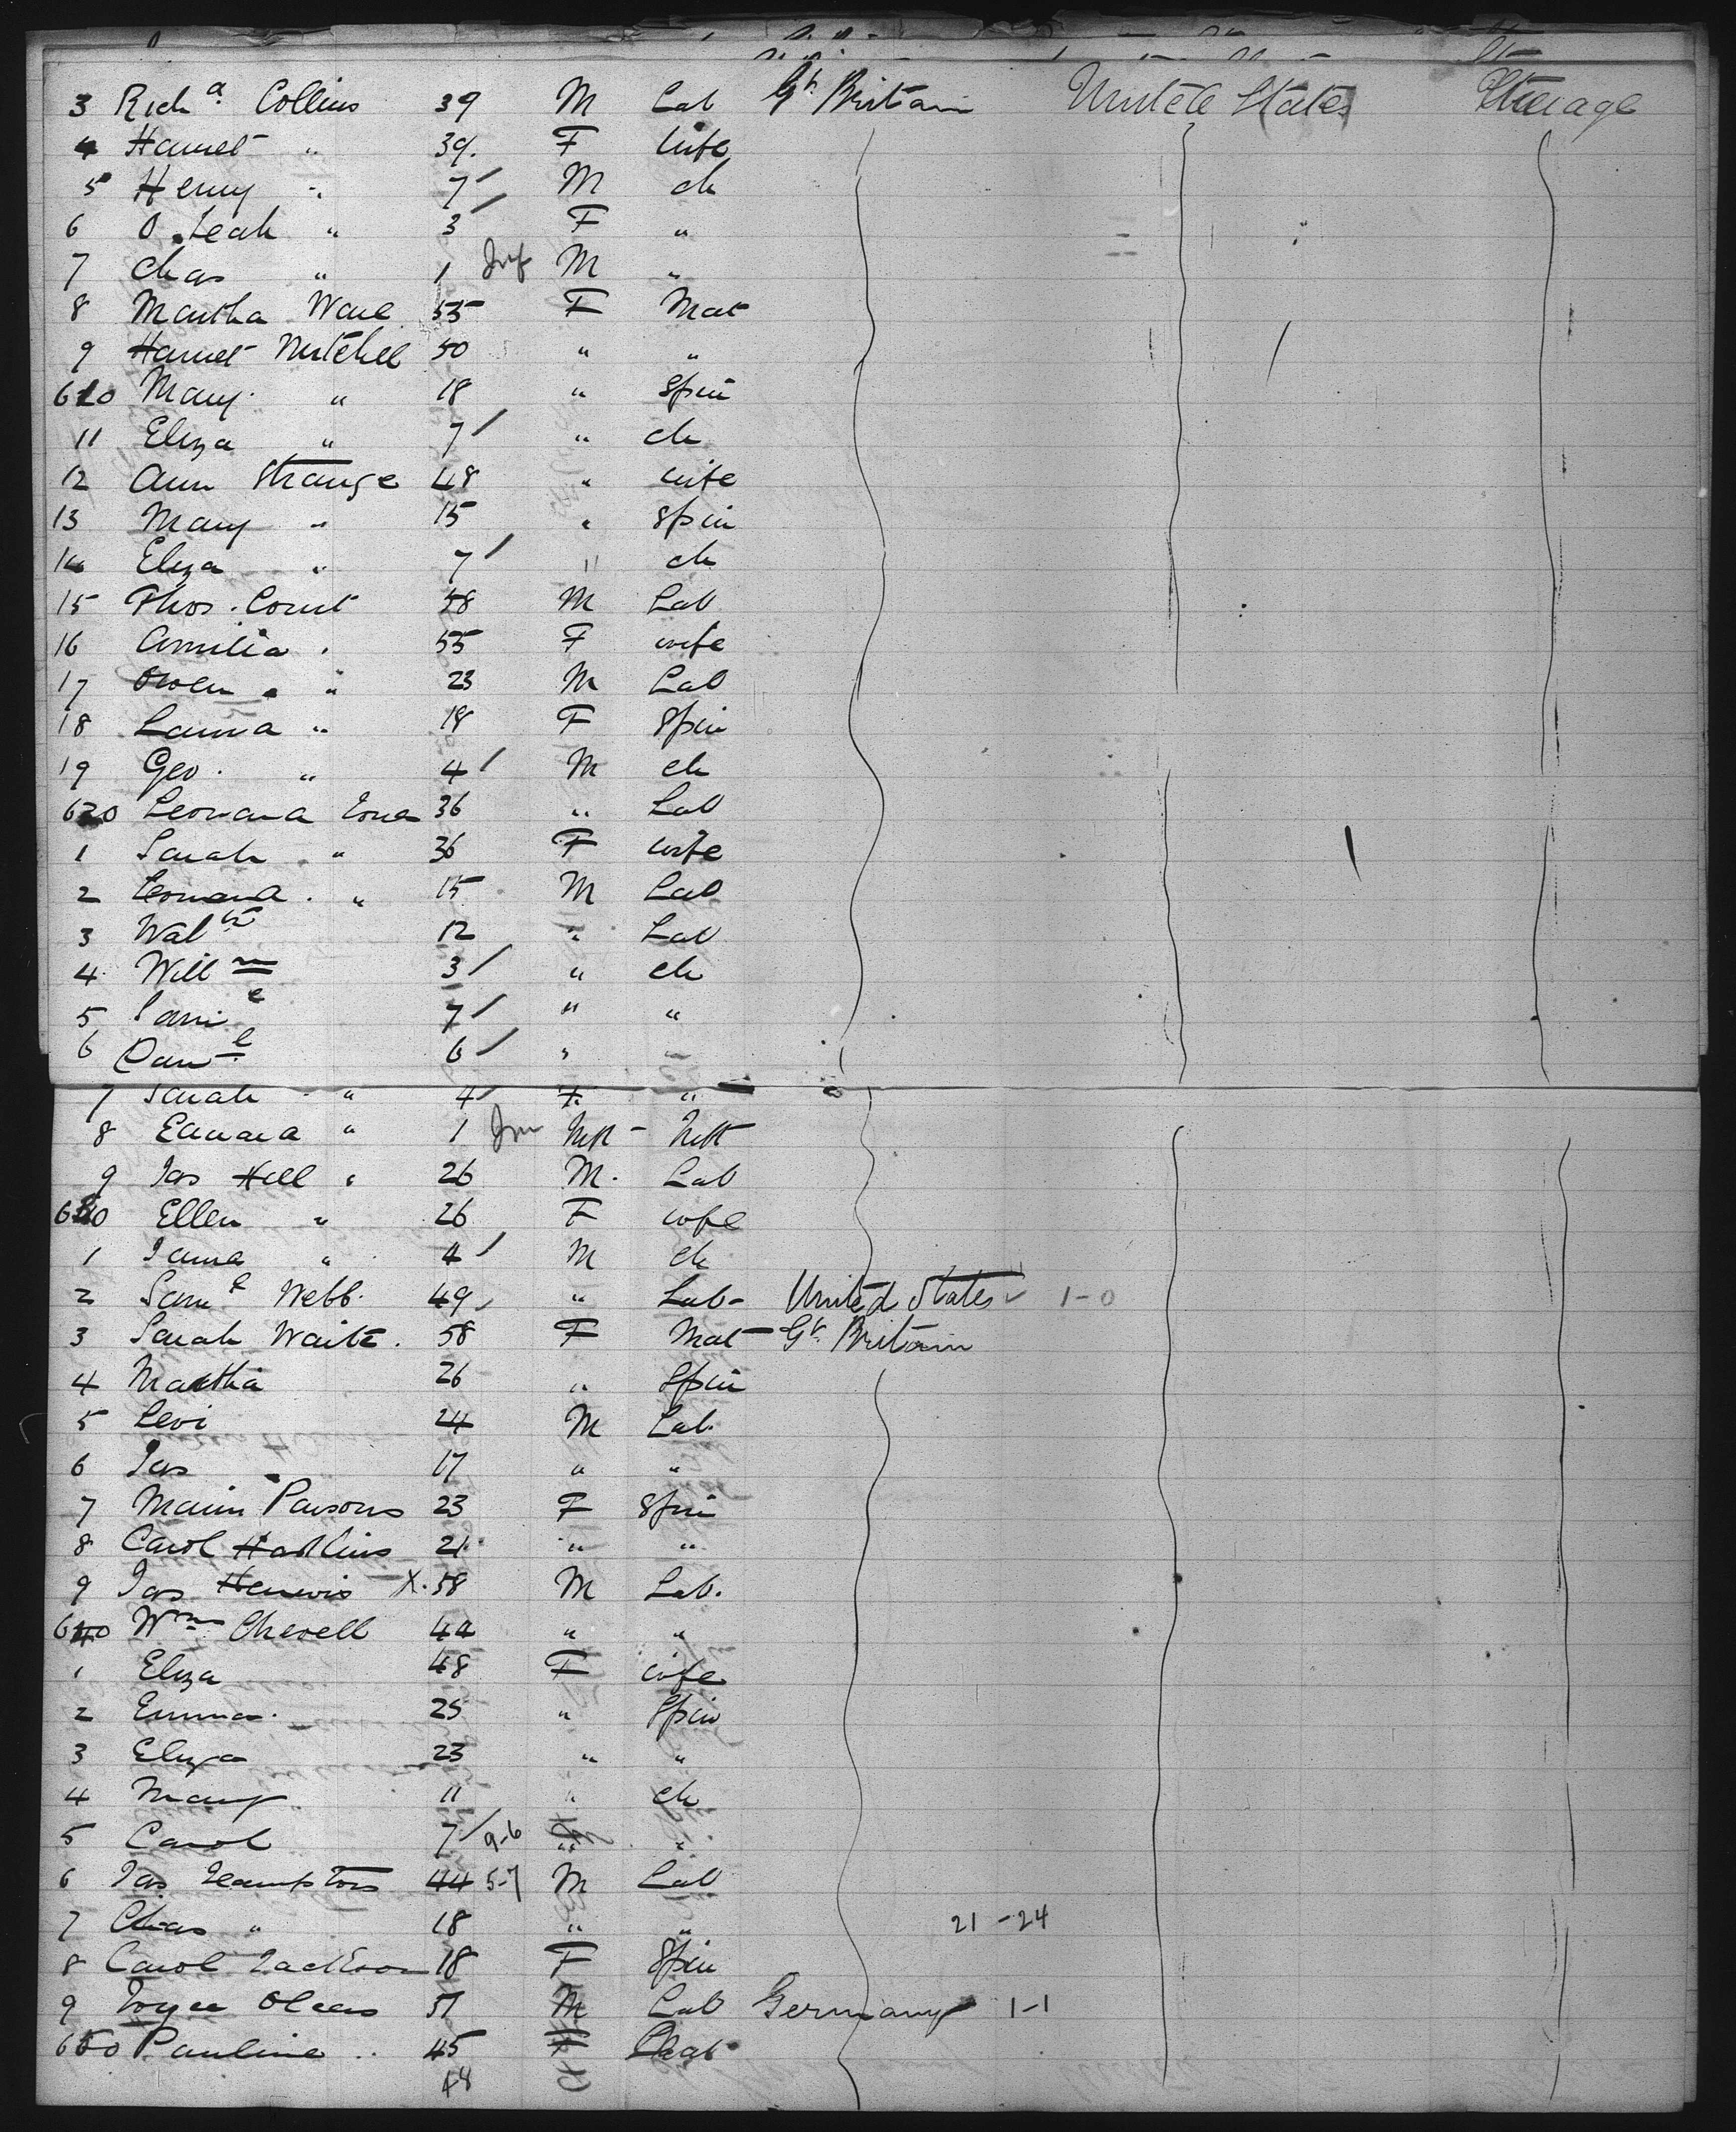 3 Rich d. Collins 39 M Lab Gt. Britain United States Steerage
4 Harriet " 39. F wife
5 Henry " 7 / M ch
6 O. Leah " 3 / F "
7 Chas " 1 Inf M "
8 Martha Ware 55 F Mat
9 Harriet Mitchell 50 " "
610 Mary " 18 " Spin
11 Eliza " 7 / " ch
12 Ann Strange 48 " wife
13 Mary " 15 " Spin
14 Eliza " 7 / " ch
15 Thos. Court 58 M Lab
16 Amilia " 55 F wife
17 Owen " 23 M Lab
18 Laura " 18 F Spin
19 Geo. " 4 / M ch
620 Leonard 36 " Lab
1 Sarah " 36 F wife
2 Leonard " 15 M Lab
3 Walter 12 " Lab
4 Willm 3 / " ch
5 7 / " "
6 Danl 6 / " "
7 Sarah " 4 / F "
8 Edward " 1
9 Jas Hill " 26 M. Lab
630 Ellen " 26 F wife
1 James " 4 / M ch
2 Saml Webb. 49 " Lab - United States 1-0
3 Sarah Waite. 58 F Mat - Gt. Britain
4 Martha 26 " Spin
5 Levi 24 M Lab.
6 Jas 17 " "
7 Parsons 23 F Spin
8 Carol 21 " "
9 Jas X. 58 M Lab.
640 Wm Chevell 44 " "
1 Eliza 48 F wife
2 Emma. 25 " Spin
3 Eliza 23 " "
4 Mary 11 " ch
5 Carol 7 / 9-6 " "
6 Jas 44 5-7 M Lab
7 Chas " 18 " " 21 - 24
8 Carol Jackson 18 F Spin
9 M Lab Germany 1-1
650 Pauline " 45 F
48